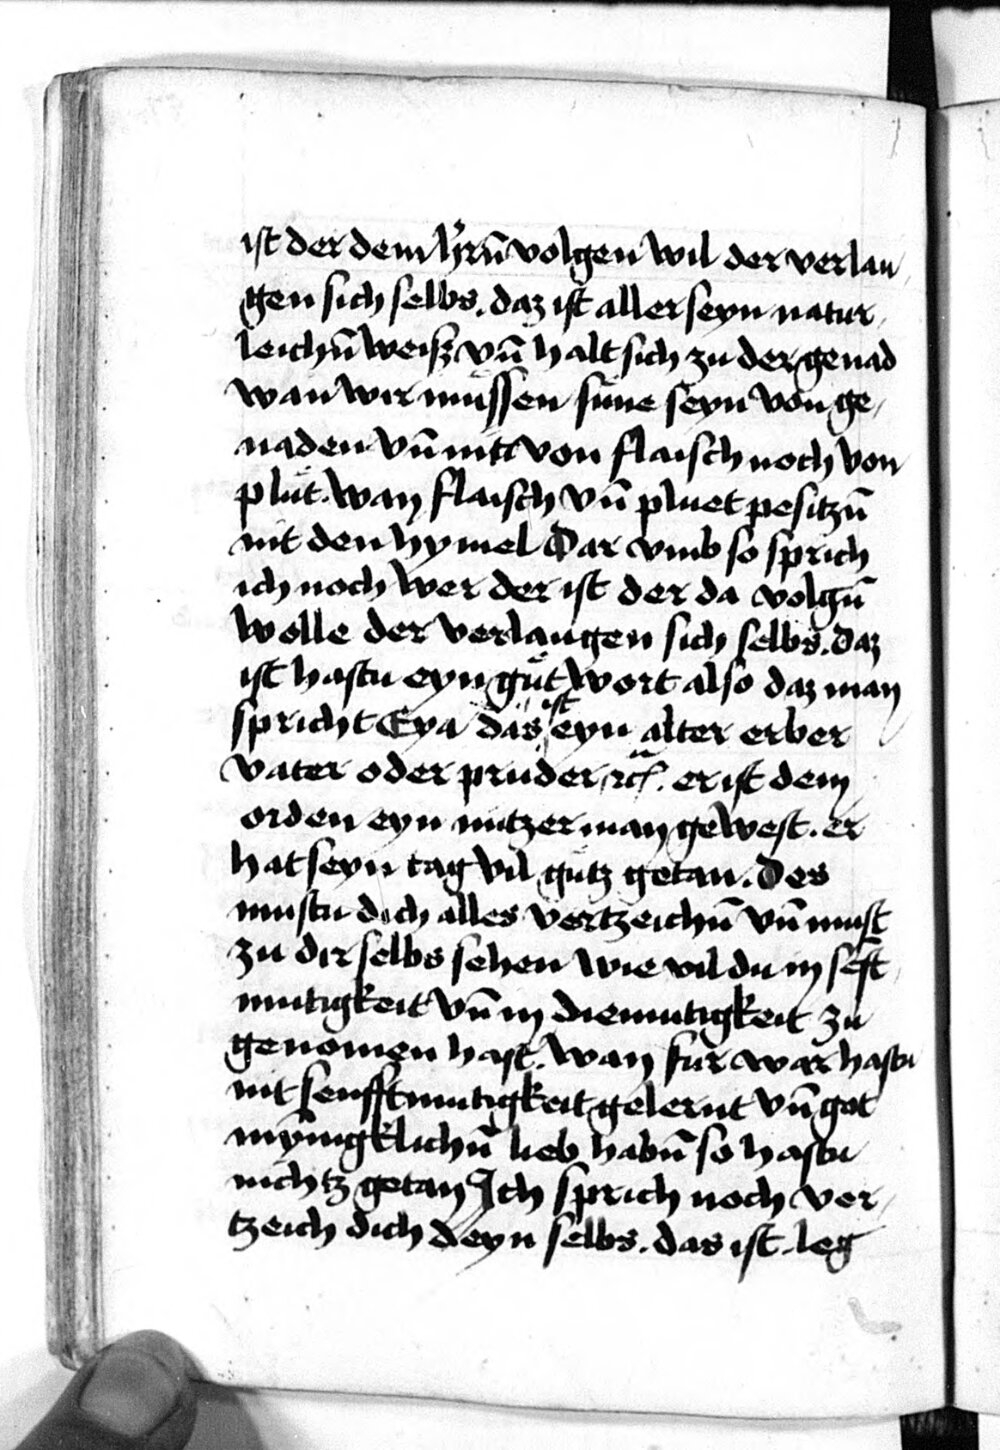 ist der dem hr̄rn̄ volgen wil der verlau
gen sich selbs. daz ist aller seyn natur
leichn̄ weisz vn̄ halt sich zu der genad
wan wir mussen sune seyn von ge
naden vn̄ nitt von flaisch noch von
plut. wan flaisch vn̄ pluet pesitzn̄
nit den hymel Dar vmb so sprich
ich noch wer der ist der da volgn̄
wolle der verlaugen sich selbs. daz
ist hastu eyn gut wort also daz man
spricht Eya das ist eyn alter erber
vater oder pruder ⁊c̃. er ist dem
orden eyn nutzer man gewest. er
hat seyn tag vil gutz getan. Des
mustu dich alles vertzeichn̄ vn̄ must
zu dir selbs sehen wie vil du in seft
mutigkeit vn̄ in diemutigkeit zu
genomen hast. wan fur war hastu
nit senfftmutigkeit gelernt vn̄ got
mynigklichn̄ lieb habn̄ so hastu
nichtz getan Ich sprich noch ver
tzeich dich deyn selbs. das ist. leg